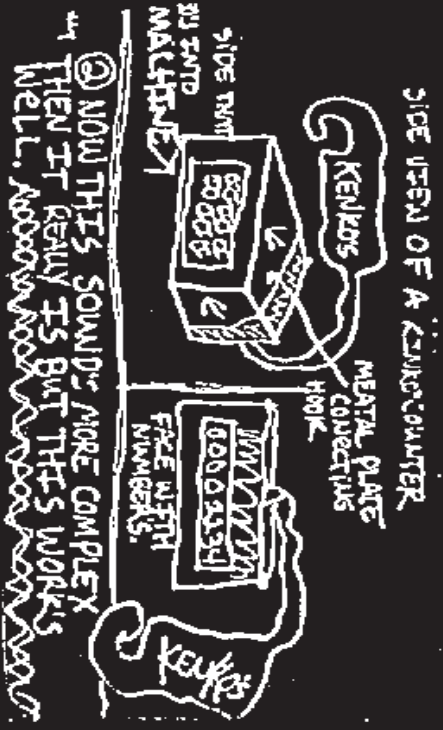 SIDE VIEW OF A KINKO'COUNTER
KENKO'S
MEATAL PLATE
CONECTING
HOOK
SIDE THAT
INTO
MACHINE
FACE WITH
NUMBERS.
00001134
② NOW THIS SOUNDS MORE COMPLEX
THEN IT REALLY IS BUT THIS WORKS
WELL.